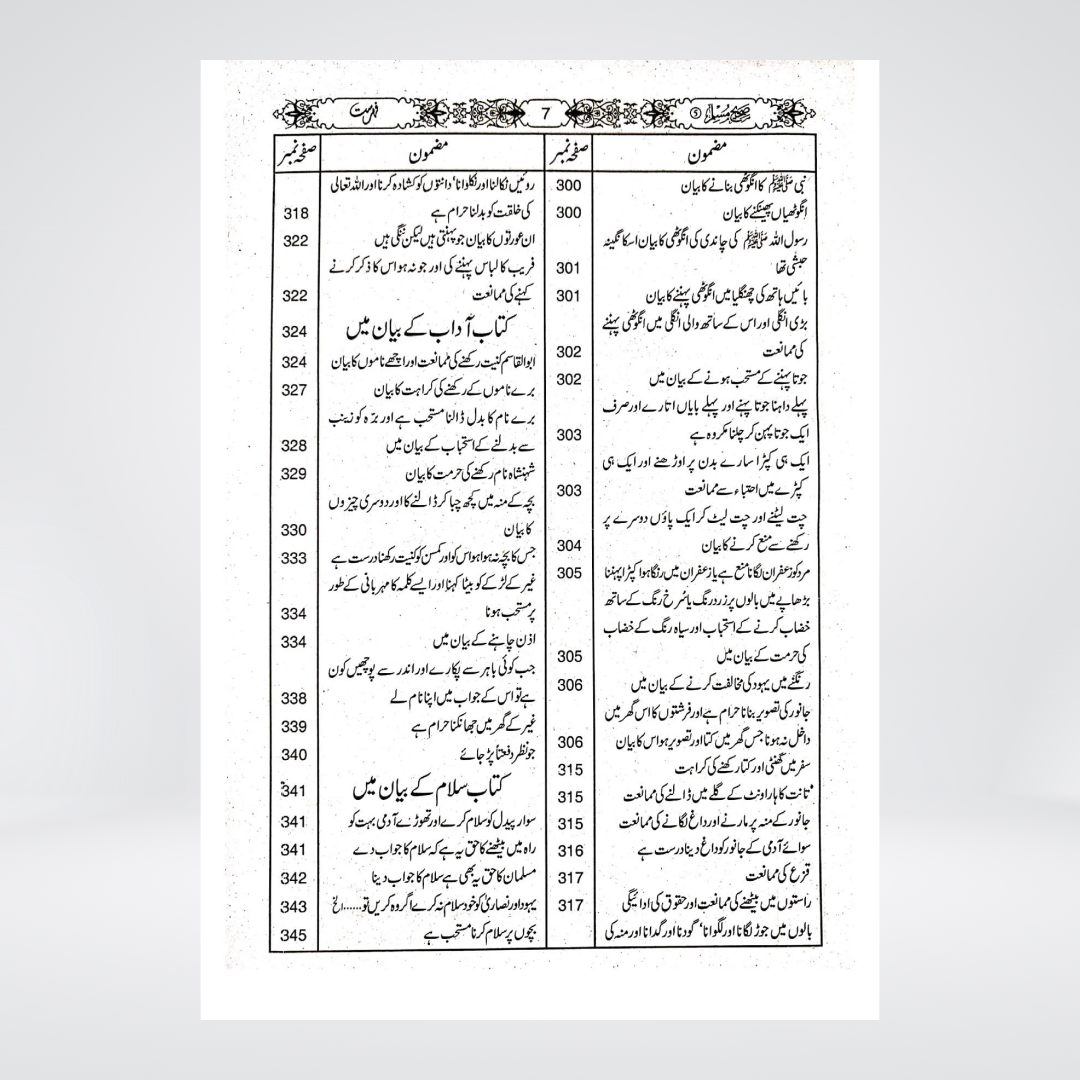 صحیح مسلم ⑤
7
فہرست
مضمون
صفحہ نمبر
نبی ﷺ کا انگوٹھی بنانے کا بیان 300
انگوٹھیاں پھینکنے کا بیان 300
رسول اللہ ﷺ کی چاندی کی انگوٹھی کا بیان اسکا نگینہ
حبشی تھا 301
بائیں ہاتھ کی چھنگلیا میں انگوٹھی پہننے کا بیان 301
بڑی انگلی اور اس کے ساتھ والی انگلی میں انگوٹھی پہننے
کی ممانعت 302
جوتا پہننے کے مستحب ہونے کے بیان میں 302
پہلے داہنا جوتا پہنے اور پہلے بایاں اتارے اور صرف
ایک جوتا پہن کر چلنا مکروہ ہے 303
ایک ہی کپڑا سارے بدن پر اوڑھنے اور ایک ہی
کپڑے میں احتباء سے ممانعت 303
چت لیٹنے اور چت لیٹ کر ایک پاؤں دوسرے پر
رکھنے سے منع کرنے کا بیان 304
مرد کو زعفران لگانا منع ہے یا زعفران میں رنگا ہوا کپڑا پہننا 305
بڑھاپے میں بالوں پر زرد رنگ یا سرخ رنگ کے ساتھ
خضاب کرنے کے استحباب اور سیاہ رنگ کے خضاب
کی حرمت کے بیان میں 305
رنگنے میں یہود کی مخالفت کرنے کے بیان میں 306
جانور کی تصویر بنانا حرام ہے اور فرشتوں کا اس گھر میں
داخل نہ ہونا جس گھر میں کتا اور تصویر ہو اس کا بیان 306
سفر میں گھنٹی اور کتا رکھنے کی کراہت 315
تانت کا ہار اونٹ کے گلے میں ڈالنے کی ممانعت 315
جانور کے منہ پر مارنے اور داغ لگانے کی ممانعت 315
سوائے آدمی کے جانور کو داغ دینا درست ہے 316
قزع کی ممانعت 317
راستوں میں بیٹھنے کی ممانعت اور حقوق کی ادائیگی 317
بالوں میں جوڑ لگانا اور لگوانا‘ گودنا اور گدانا اور منہ کی
مضمون
صفحہ نمبر
روئیں نکالنا اور نکلوانا‘ دانتوں کو کشادہ کرنا اور اللہ تعالی
کی خلقت کو بدلنا حرام ہے 318
ان عورتوں کا بیان جو پہنتی ہیں لیکن ننگی ہیں 322
فریب کا لباس پہننے کی اور جو نہ ہو اس کا ذکر کرنے
کہنے کی ممانعت 322
کتاب آداب کے بیان میں 324
ابوالقاسم کنیت رکھنے کی ممانعت اور اچھے ناموں کا بیان 324
برے ناموں کے رکھنے کی کراہت کا بیان 327
برے نام کا بدل ڈالنا مستحب ہے اور برّہ کو زینب
سے بدلنے کے استحباب کے بیان میں 328
شہنشاہ نام رکھنے کی حرمت کا بیان 329
بچہ کے منہ میں کچھ چبا کر ڈالنے کا اور دوسری چیزوں
کا بیان 330
جس کا بچہ نہ ہوا ہو اس کو اور کمسن کو کنیت رکھنا درست ہے 333
غیر کے لڑکے کو بیٹا کہنا اور ایسے کلمہ کا مہربانی کے طور
پر مستحب ہونا 334
اذن چاہنے کے بیان میں 334
جب کوئی باہر سے پکارے اور اندر سے پوچھیں کون
ہے تو اس کے جواب میں اپنا نام لے 338
غیر کے گھر میں جھانکنا حرام ہے 339
جو نظر دفعتاً پڑ جائے 340
کتاب سلام کے بیان میں 341
سوار پیدل کو سلام کرے اور تھوڑے آدمی بہت کو 341
راہ میں بیٹھنے کا حق یہ ہے کہ سلام کا جواب دے 341
مسلمان کا حق یہ بھی ہے سلام کا جواب دینا 342
یہود اور نصاریٰ کو خود سلام نہ کرے اگر وہ کریں تو......الخ 343
بچوں پر سلام کرنا مستحب ہے 345